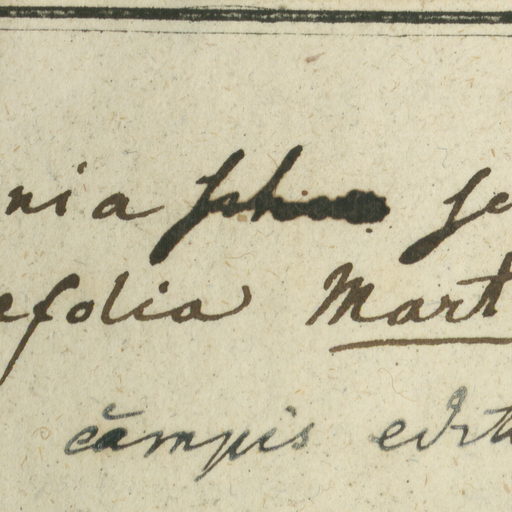 nia se
efolia Mart
campis edit